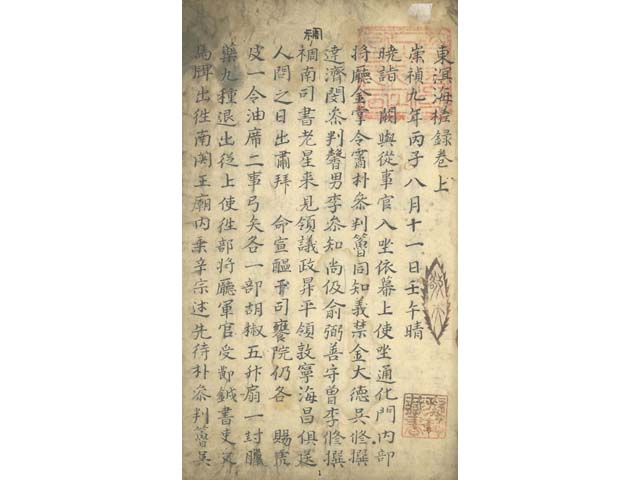 東溟海槎錄卷上
崇禎九年丙子八月十一日壬午晴
曉詣 闕與從事官入坐依幕上使坐通化門內部
將廳金掌令霱朴參判𥳑同知義禁金大德吳修撰
達濟閔參判馨男李參知尚伋俞弼善守曾李修撰
禂南司書老星來見領議政昇平領敦寧海昌俱送
人問之日出肅拜 命宣醞于司饔院仍各 賜虎
皮一令油席二事弓矢各一部胡椒五升扇一封臘
藥九種退出從上使徃部將廳軍官受鄭鉞書吏
馬牌出徃南関王廟內乗辛宗述先待朴參判吳
禂
1